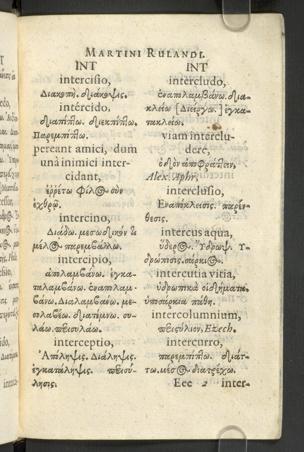 MARTINI RULANDI.
INT
intercisio,
Διακοπὴ. διάκοψις.
intércido.
διαπίπτω. διεκπίπτω.
Παρεμπίπτω.
pereant amici, dum
unà inimici inter-
cidant,
ἐῤῥέτω φίλος σὺν
ἐχθρῷ.
intercino,
μέλος παρεμβάλλω.
intercipio,
ἀπολαμβάνω. ἐγκα-
ταλαμβάνω. ἐναπολαμ-
βάνω. Διαλαμβάνω. με-
σολαβέω. διατέμνω. συ-
λάω.
interceptio,
Ἀπόληψις. Διάληψις.
ἐγκατάληψις.
INT
intercludo,
ἐναπολαμβάνω. δια-
κλείω [Διείργω.] ἐγκα-
τακλείω.
viam interclu-
dere,
ὁδὸν ἀποφράττειν,
Alex. Aphr.
interclusio,
Ἐναπόκλεισις. παρέν-
θεσις.
intercus aqua,
ὕδερος. Ὕδρωψ. Ὑ-
δρώπισις.
intercutia vitia,
ὑδρωπικὰ οἰδήματα,
ὑποσάρκια πάθη.
intercolumnium,
Ezech.
intercurro,
παρεμπίπτω. διάτ-
τω. μέσος διατρέχω.
Eee 2 inter-